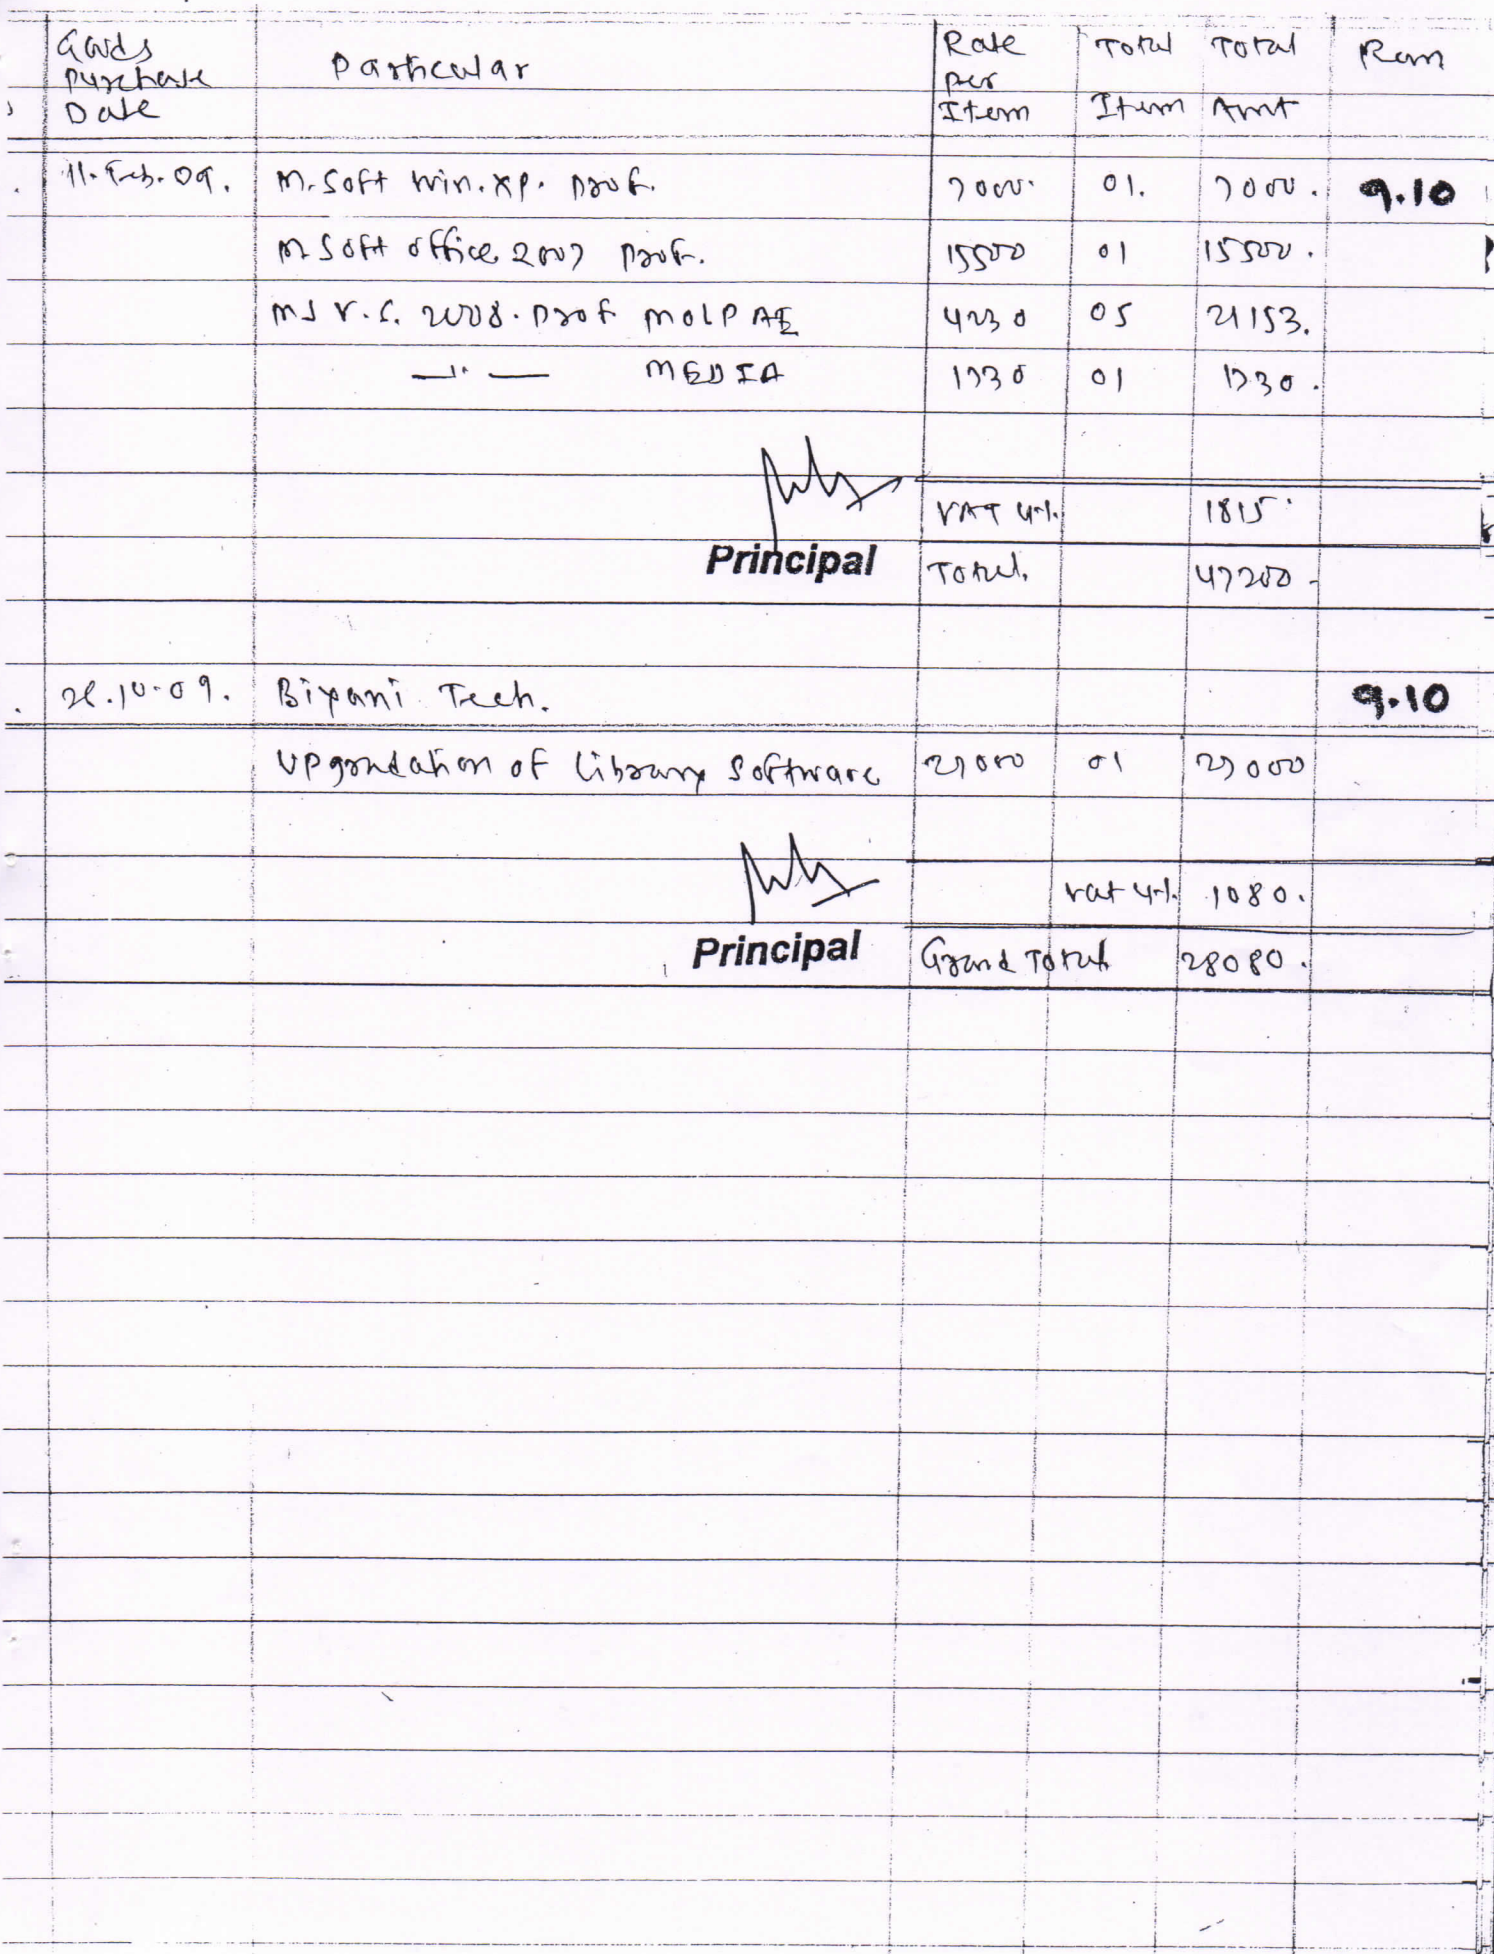 Goods Purchase Date Particular Rate per Item Total Item Total Amt Rem
11. Feb. 09. M. Soft Win. XP. Prof. 7000. 01. 7000. 9.10
M Soft office 2007 Prof. 15500 01 15500.
MS V.S. 2008. Prof MOLP AE 4230 05 21153.
—"— MEDIA 1730 01 1730.
VAT 4% 1815
Principal Total. 47200 -
28.10.09. Biyani Tech. 9.10
Upgradation of Library Software 27000 01 27000
Vat 4% 1080.
Principal Grand Total 28080.